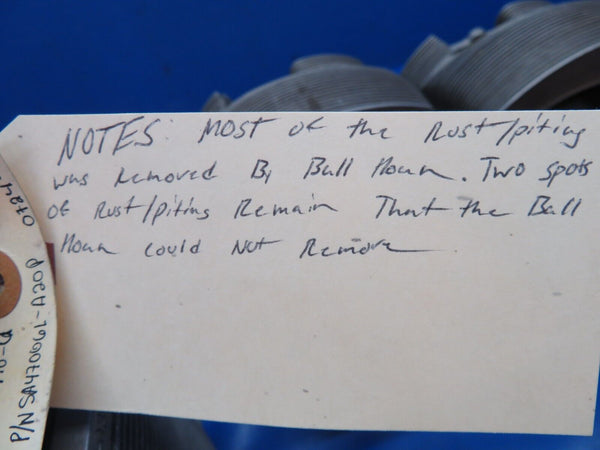 NOTES: MOST of the Rust/piting
was Removed By Ball Hoan. Two spots
of Rust/piting Remain That the Ball
Hoan could Not Remove
P/N SA470061-A20P